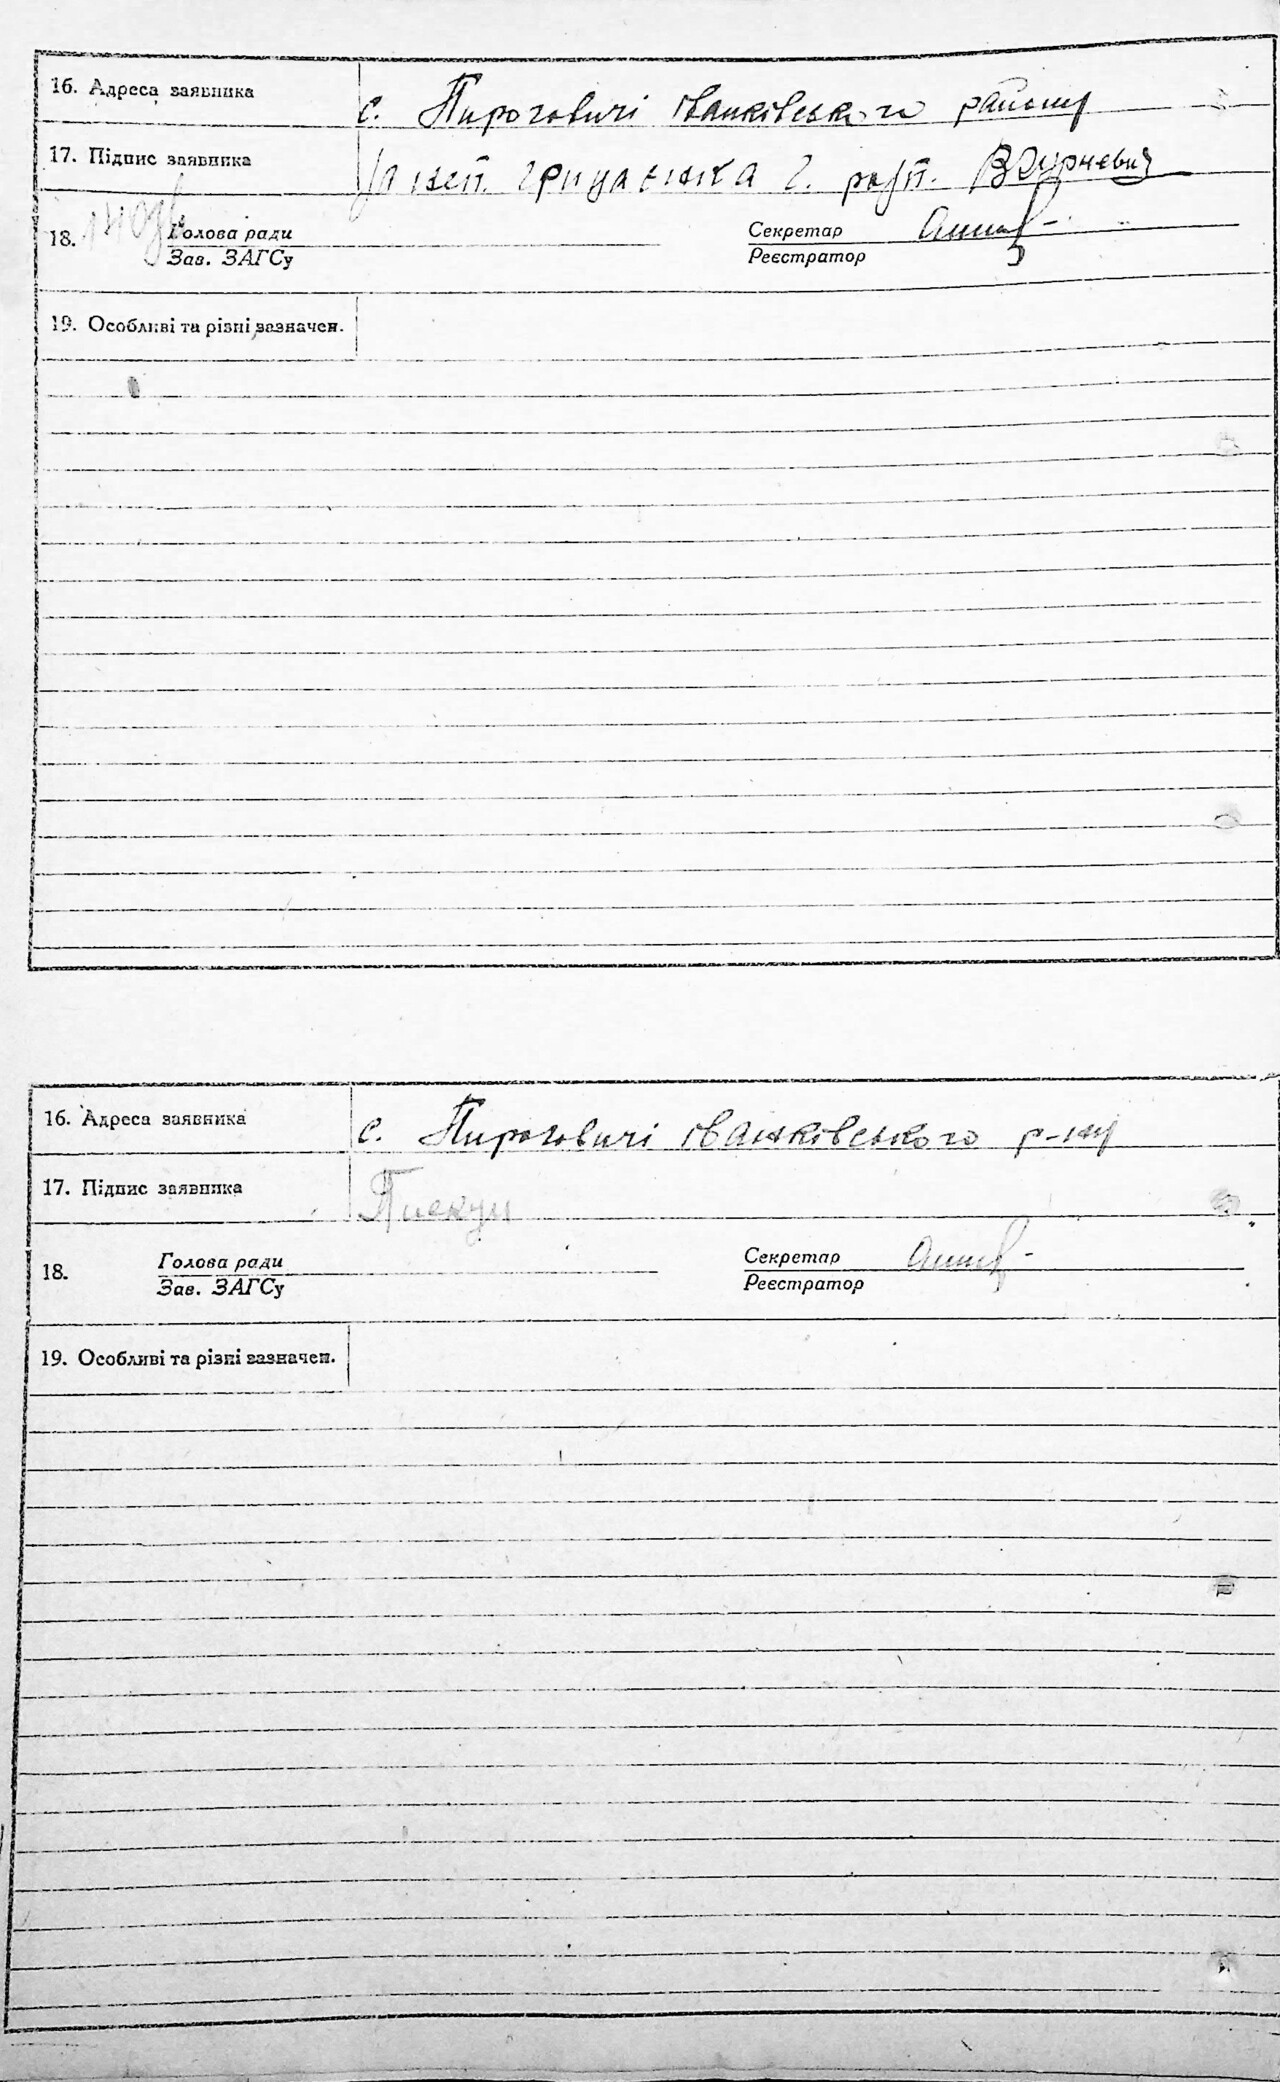 16. Адреса заявника
с. Пироговичі Іванківського району
17. Підпис заявника
неп. Грицаенка г. расп.
18. Голова ради
Зав. ЗАГСу
Секретар
Реєстратор
19. Особливі та різні зазначен.
16. Адреса заявника
с. Пироговичі Іванківського р-ну
17. Підпис заявника
Пискун
18. Голова ради
Зав. ЗАГСу
Секретар
Реєстратор
19. Особливі та різні зазначен.